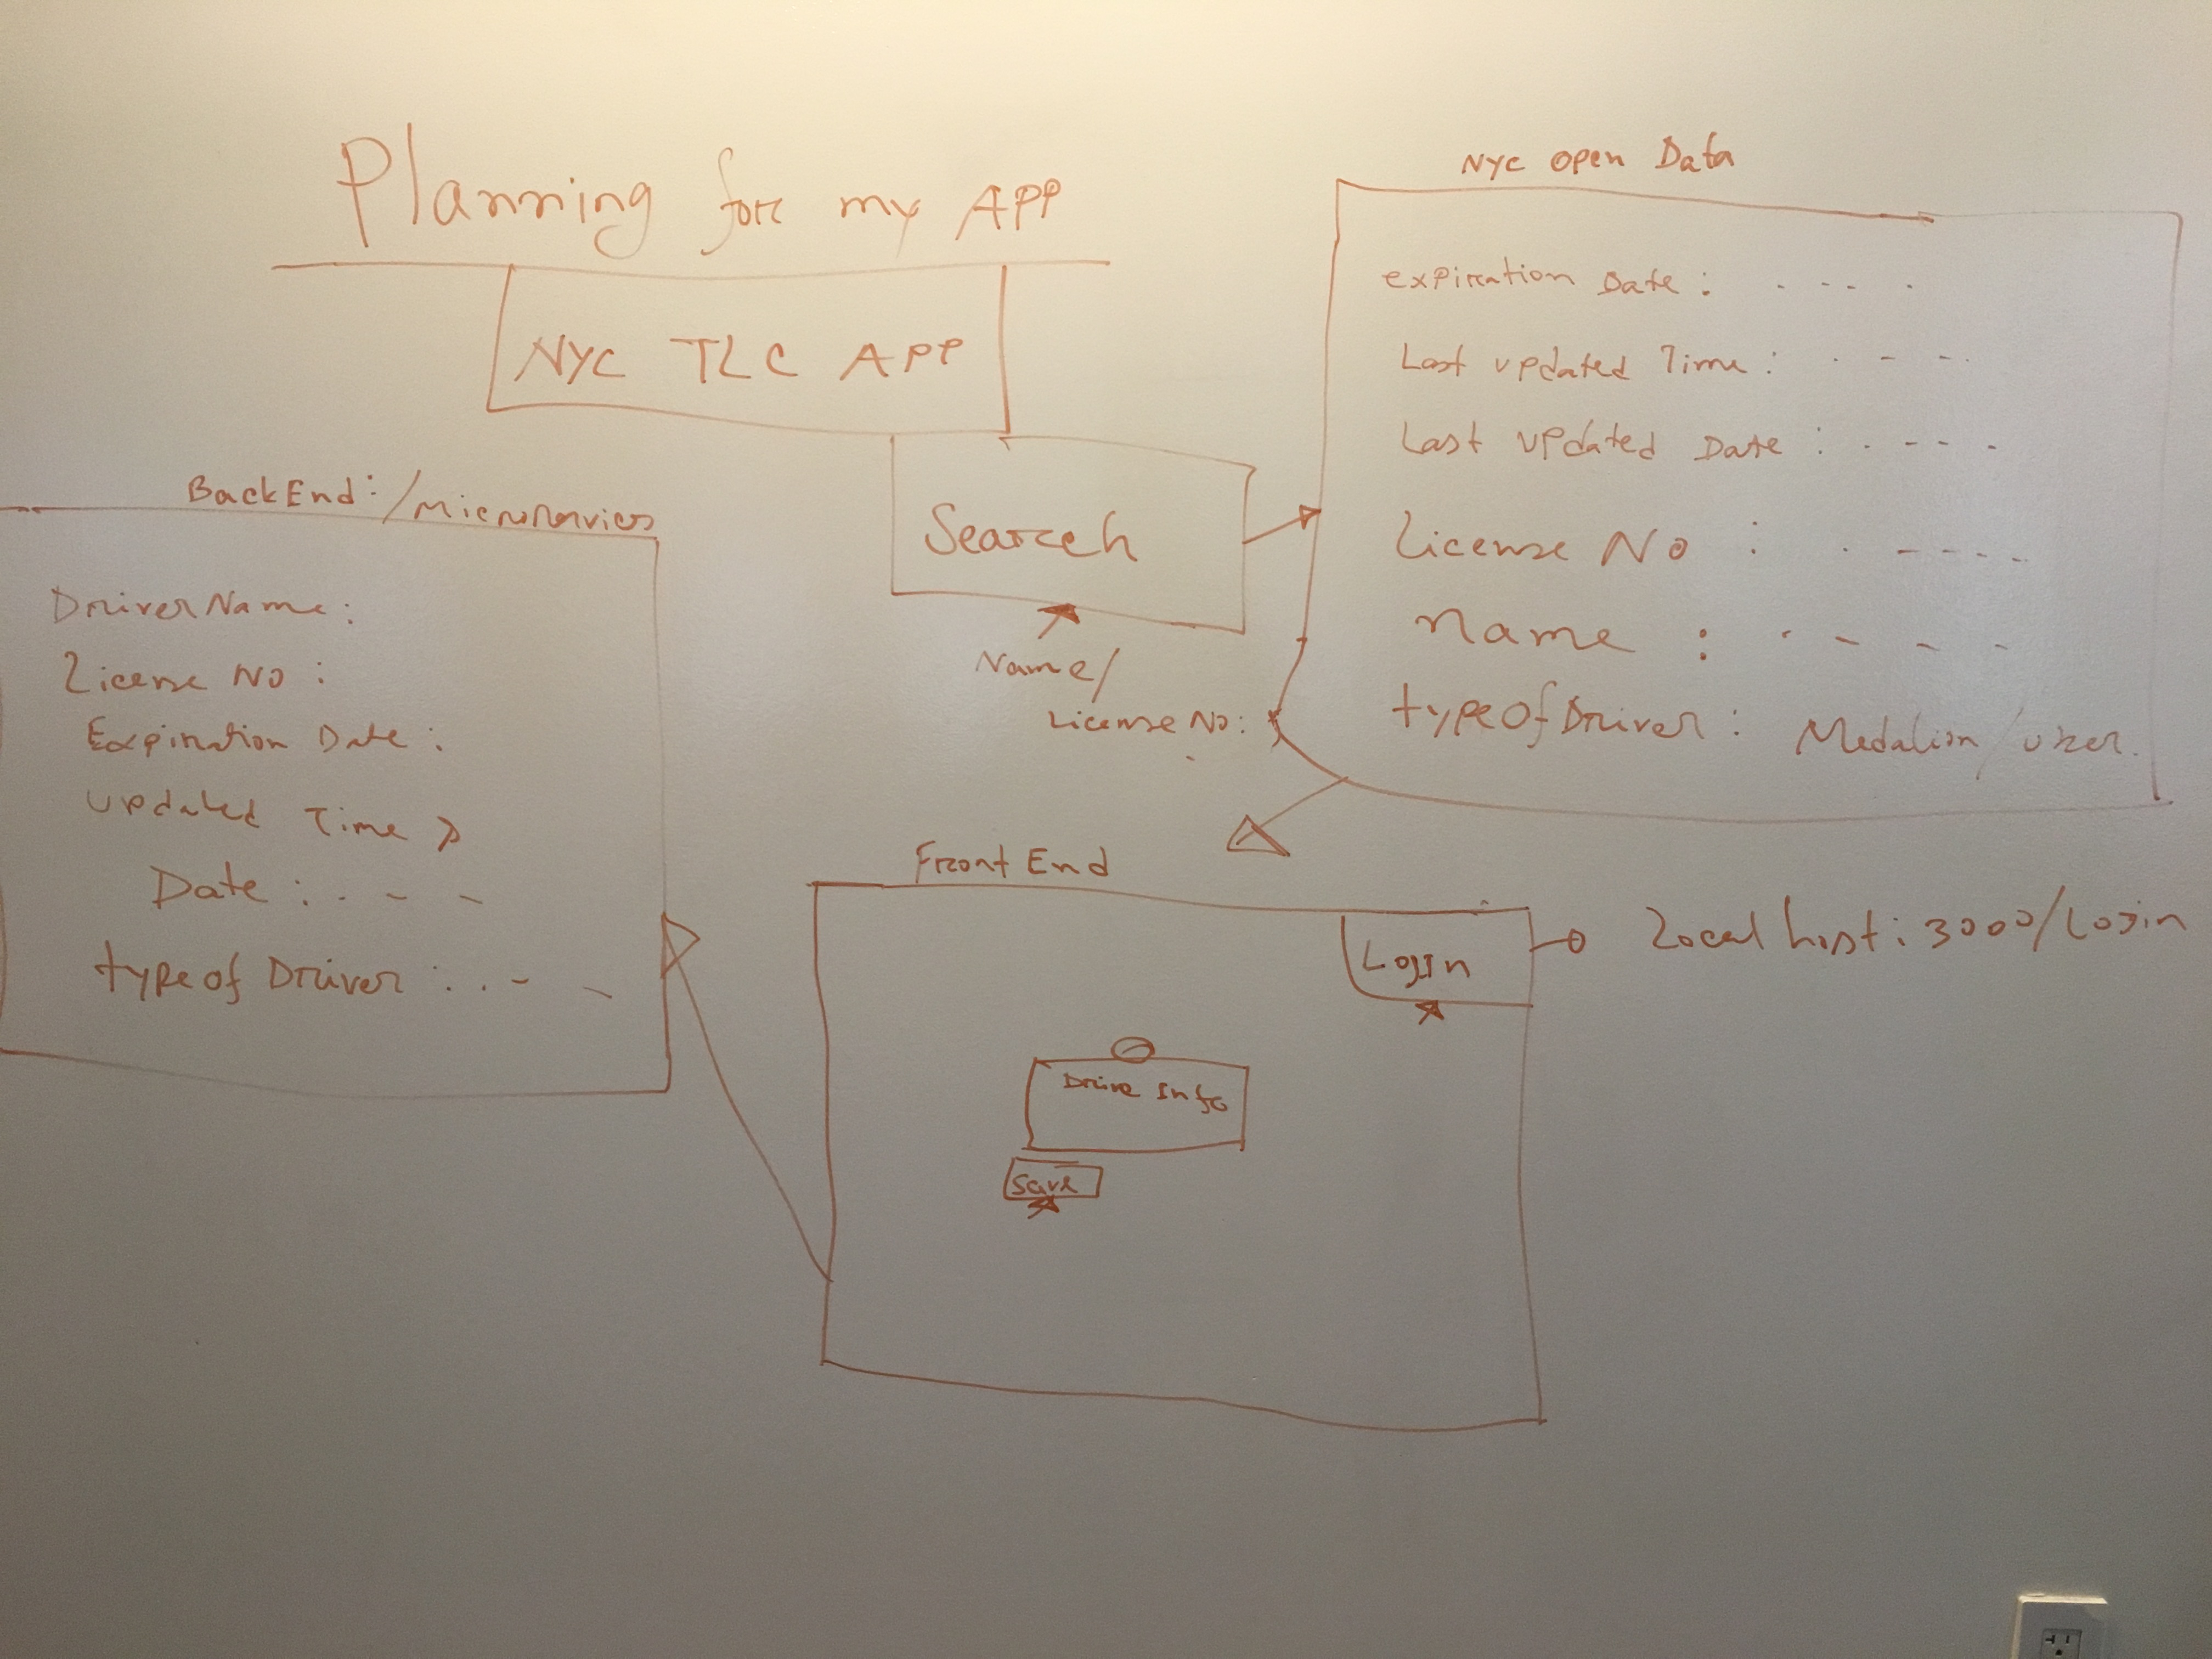 Planning for my APP
NYC TLC APP
Search
Name/
License No:
NYC open Data
expiration Date : - - - -
Last updated Time : - - -
Last updated Date : - - - -
License No : - - - - -
name : - - - -
typeOfDriver : Medalion/uber.
BackEnd:/microservices
DriverName:
License No :
Expiration Date :
updated Time >
Date : - - -
typeof Driver : . . - -
Front End
Login
Localhost:3000/Login
Drive Info
Save